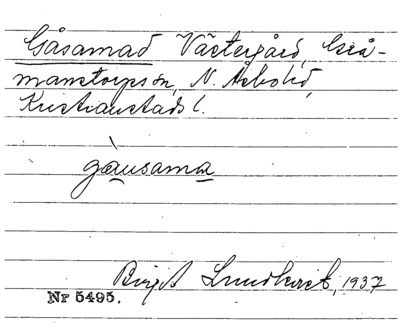 Gåsamad Västergård, Grå-
manstorps sn, N. Åsbo hd,
Kristianstads l.
gàusama
Birgit Lundkvist, 1937
Nr 5495.